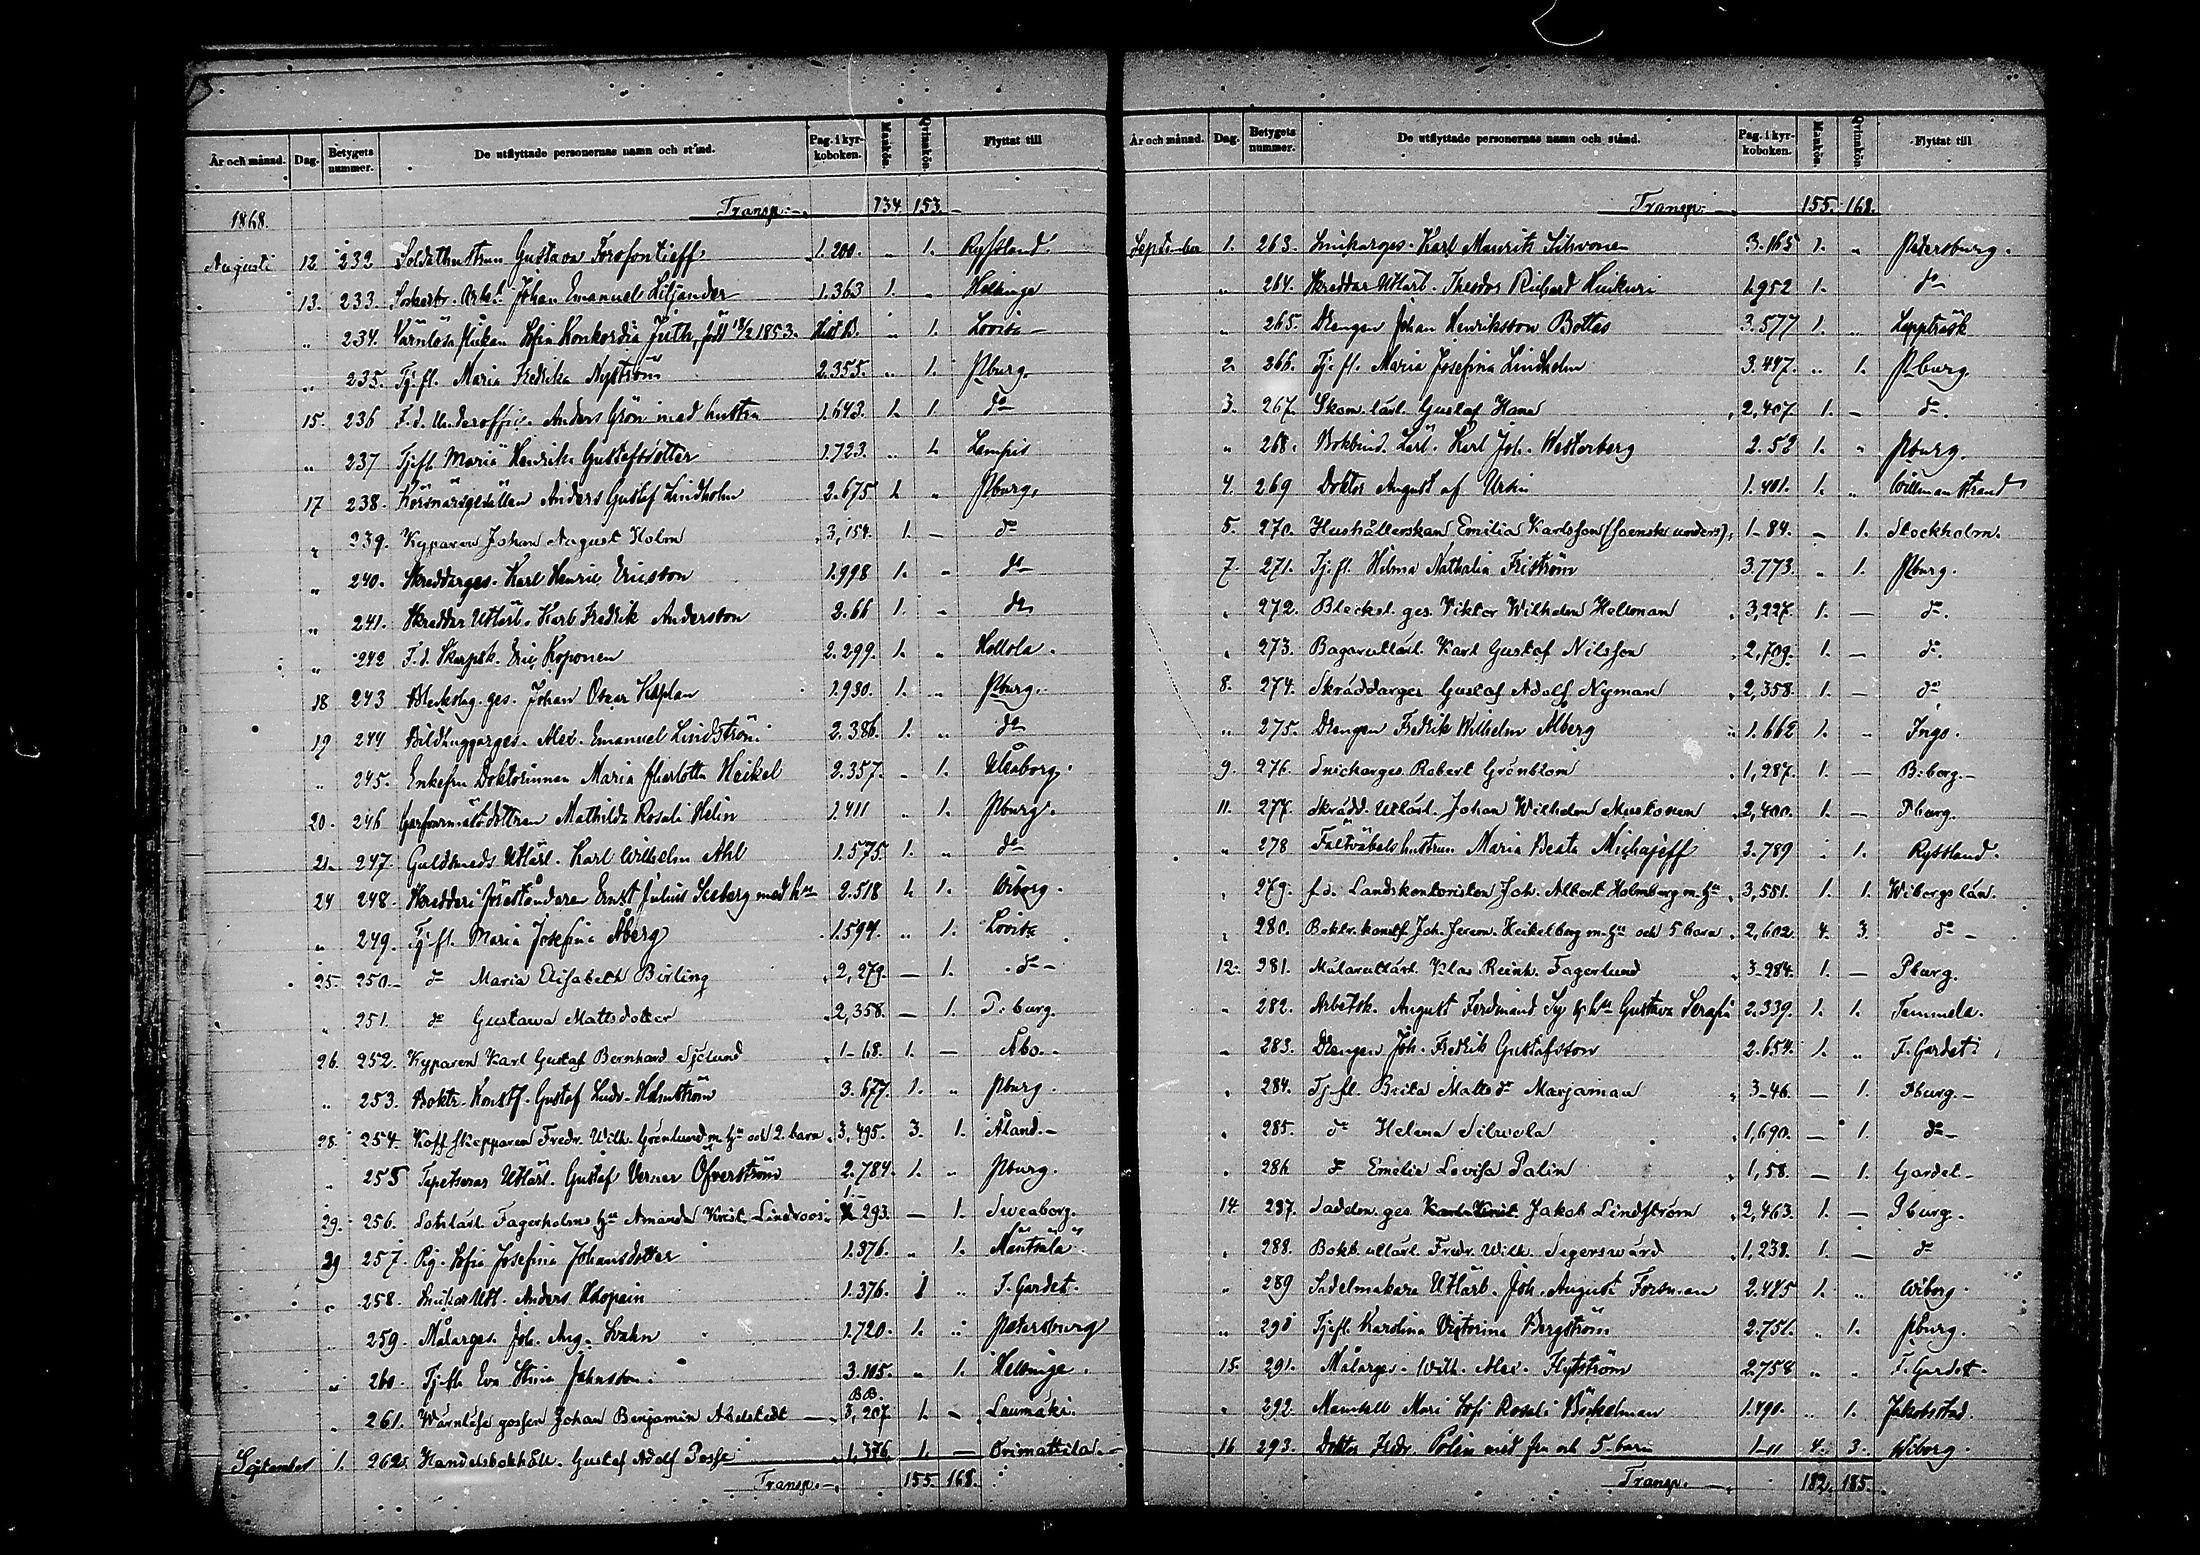 År och månad. Dag. Betygets nummer. De utflyttade personernas namn och stånd. Pag. i kyrkoboken. Mankön. Qvinnkön. Flyttat till
1868. Transp. 134. 153.
Augusti 12 232 Soldathustrun Gustava 1.200. " 1. Ryssland.
13. 233. Johan Emanuel Liljander 1.363 1. " Helsinge
" 234. Värnlösa flickan Sofia Konkordia född 1853. " 1. Lovisa
" 235. Tj.fl. Maria Fredrika Nyström 2.355. " 1. Pburg.
15. 236 F.d. Underoffic. Anders Grön med hustru 1.643. 1. 1. do
" 237 Tj.fl. Maria Henrika Gustafsdotter 1.723. " 1. Lampis
17 238. Anders Gustaf Lindholm 2.675 1. " Pburg.
" 239. Kyparen Johan August Holm 3,154. 1. — do
" 240. Skräddarges. Karl Henric Ericsson 1.998 1. " do
" 241. Skräddar Utlärl. Karl Fredrik Andersson 2.66 1. " do
" 242 F.d. Skarpsk. Eric Koponen 2.299. 1. " Hollola.
18 243 Bleckslag. ges. Johan Oscar Kaplan 1.930. 1. " Pburg.
19 244 Bildhuggarges. Alex. Emanuel Lindström 2.386. 1. " do
" 245. Enkefru Doktorinnan Maria Charlotta Heikel 2.357. " 1. Uleåborg.
20. 246 Mathilda Rosali Helin 1.411 " 1. Pburg.
21. 247. Guldsmeds Utlärl. Karl Wilhelm Ahl 1.575. 1. " do
24 248. Skrädderi föreståndaren Ernst Julius Seeberg med hu 2.518 1. 1. Wiborg.
" 249. Tj.fl. Maria Josefina Åberg 1.594. " 1. Lovisa
25. 250. do Maria Elisabeth Birling 2,279. — 1. do
" 251. do Gustawa Mattsdotter 2,358. — 1. P:burg.
26. 252. Kyparen Karl Gustaf Bernhard Sjölund 1-68. 1. — Åbo.
" 253. Boktr. Konstf. Gustaf Ludv. Holmström 3.677. 1. " Pburg.
28. 254. Koff. skepparen Fredr. Wilh. Grönlund m. hu och 2. barn 3,495. 3. 1. Åland.
" 255 Tapetserar Utlärl. Gustaf Verner Öfverström 2.784. 1. " Pburg.
29. 256. Fagerholms hu Amanda Krist. Lindroos 1. 293. — 1. Sweaborg.
29 257. Pig. Sofia Josefina Johansdotter 1.376. " 1. Mäntsälä.
" 258. Snickar Utl. Anders 1.376. 1 " F. Gardet.
" 259. Målarges. Joh. Aug. Svahn 1.720. 1. " Petersburg
" 260. Tj.fl. Eva Stina Johnsson 3.105. " 1. Helsinge.
" 261. Wärnlösa gossen Johan Benjamin Abelstedt BB. 3,207 1. — Luumäki.
September 1. 262. Handelsbokhåll. Gustaf Adolf Posse 1,376 1. — Orimattila.
Transp. 155. 168.
År och månad. Dag. Betygets nummer. De utflyttade personernas namn och stånd. Pag. i kyrkoboken. Mankön. Qvinnkön Flyttat till
Transp. 155. 168.
September 1. 263. Snickarges. Karl Mauritz Sihvonen 3.165 1. " Petersburg.
" 264. Skräddar Utlärl. Theodor Richard 1.952 1. do
" 265. Drängen Johan Henriksson Bottas 3.577 1. " Lappträsk
2 266. Tj.fl. Maria Josefina Lindholm 3.447. " 1. Pburg.
3. 267. Gustaf 2,407 1. — do.
" 268. Bokbind. Lärl. Karl Joh. Westerberg 2.52 1. " Pburg.
4. 269 Doktor August af Ursin 1.401. 1. " Willmanstrand
5. 270. Hushållerskan Emilia Karlsson (svensk unders), 1-84. — 1. Stockholm.
7. 271. Tj.fl. Hilma Nathalia Friström 3.773. " 1. Pburg.
" 272. Blecksl. ges. Viktor Wilhelm Hellman 3,227. 1. — do.
" 273. Bagarutlärl. Karl Gustaf Nilsson 2,709. 1. — do.
8. 274. Skräddarges Gustaf Adolf Nyman 2,358. 1. — do
" 275. Drengen Fredrik Wilhelm Alberg 1.662 1. " Ingo.
9. 276. Snickarges. Robert Grönblom 1,287. 1. — B:borg.
11. 277. Skrädd. Utlärl. Johan Wilhelm Mustonen 2,400. 1. — Pburg.
" 278 Fältväbels hustrun Maria Beata Michajeff 2.789 " 1. Ryssland.
" 279. f.d. Landskontoristen Joh. Albert Holmberg m. hu 3,551. 1. 1. Wiborgs län.
" 280. Boktr. konstf. Joh. Jerem. Heikelberg m. hu och 5 barn 2,602. 4. 3. do
12. 281. Målarutlärl. Klas Reinh. Fagerlund 3-284. 1. — Pburg.
" 282. Arbetsk. August Ferdinand hu Gustava Serafi 2.339. 1. 1. Tammela.
" 283. Drängen Joh. Fredrik Gustafsson 2.654. 1. " F. Gardet.
" 284. Tj.fl. Brita Matts dr Marjaman 3-46. — 1. Pburg.
" 285. do Helena 1,690. — 1. do
" 286 do Emelie Lovisa Palin 1,58. — 1. Gardet
14. 287. Sadelm. ges. Jakob Lindström 2,463. 1. — Pburg.
" 288. Bokb. utlärl. Fredr. Wilh. Segerswärd 1,238. 1. — do
" 289 Sadelmakare Utlärl. Joh. August Forsman 2.475 1. " Wiborg.
" 290 Tj.fl. Karolina Victorina Bergström 2.751. " 1. Pburg.
15. 291. Målarges. Wilh. Alex. Flyktström 2.758 " " F. Gardet.
" 292 Mamsell Mari Sofi Rosali Böckelman 1.490. " 1. Jakobstad.
16 293. Doktor Fredr. Polin med fru och 5 barn 1-11 4. 3. Wiborg.
Transp. 182. 185.